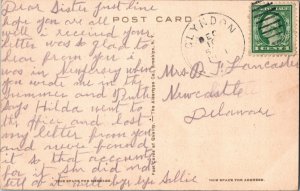 Dear Sister Just line
hope you are all
well i received your
letter was so glad to
hear from you i
was in
we wrote me in the
summer and Ruth
says Hilda went to
the office and lost
my letter from you
and never found
it so that accounts
for it. She did not
tell of it well by bye Sallie
POST CARD
GLYNDON
1 CENT 1
Mrs R T Lancaster
Newcastle
Delaware
THIS SPACE FOR MESSAGES.
THIS SPACE FOR ADDRESS.